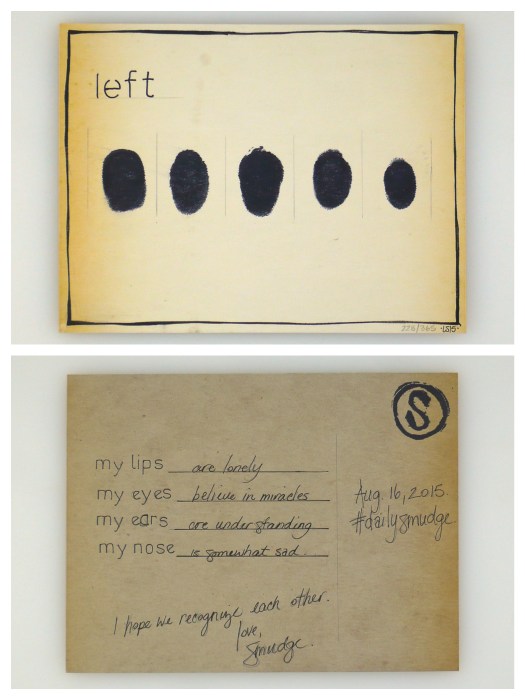 left
228/365 -LS15-
S
my lips are lonely
my eyes believe in miracles
my ears are understanding
my nose is somewhat sad.
Aug. 16, 2015.
#dailysmudge
I hope we recognize each other.
love,
smudge.